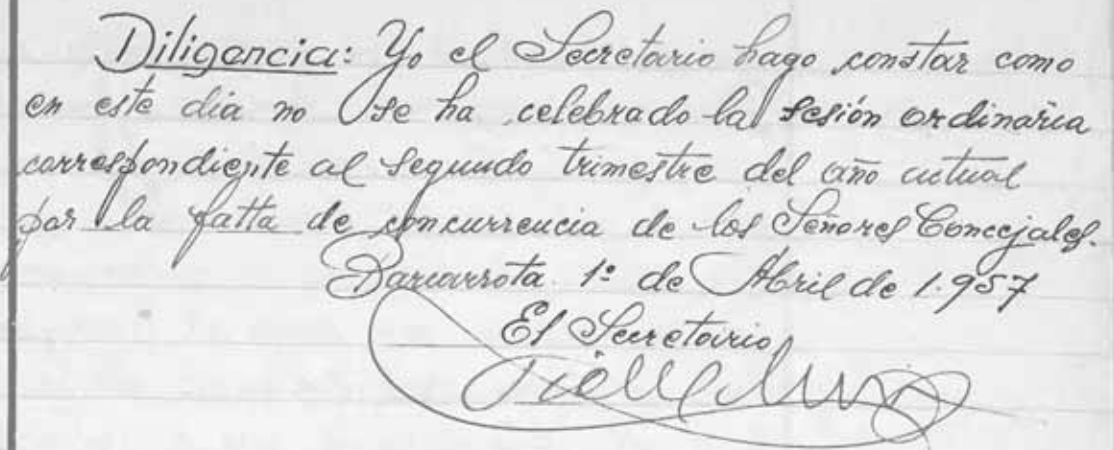 Diligencia: Yo el Secretario hago constar como
en este dia no se ha celebrado la sesión ordinaria
correspondiente al segundo trimestre del año actual
por la falta de concurrencia de los Señores Concejales.
Barcarrota 1º de Abril de 1.957
El Secretario